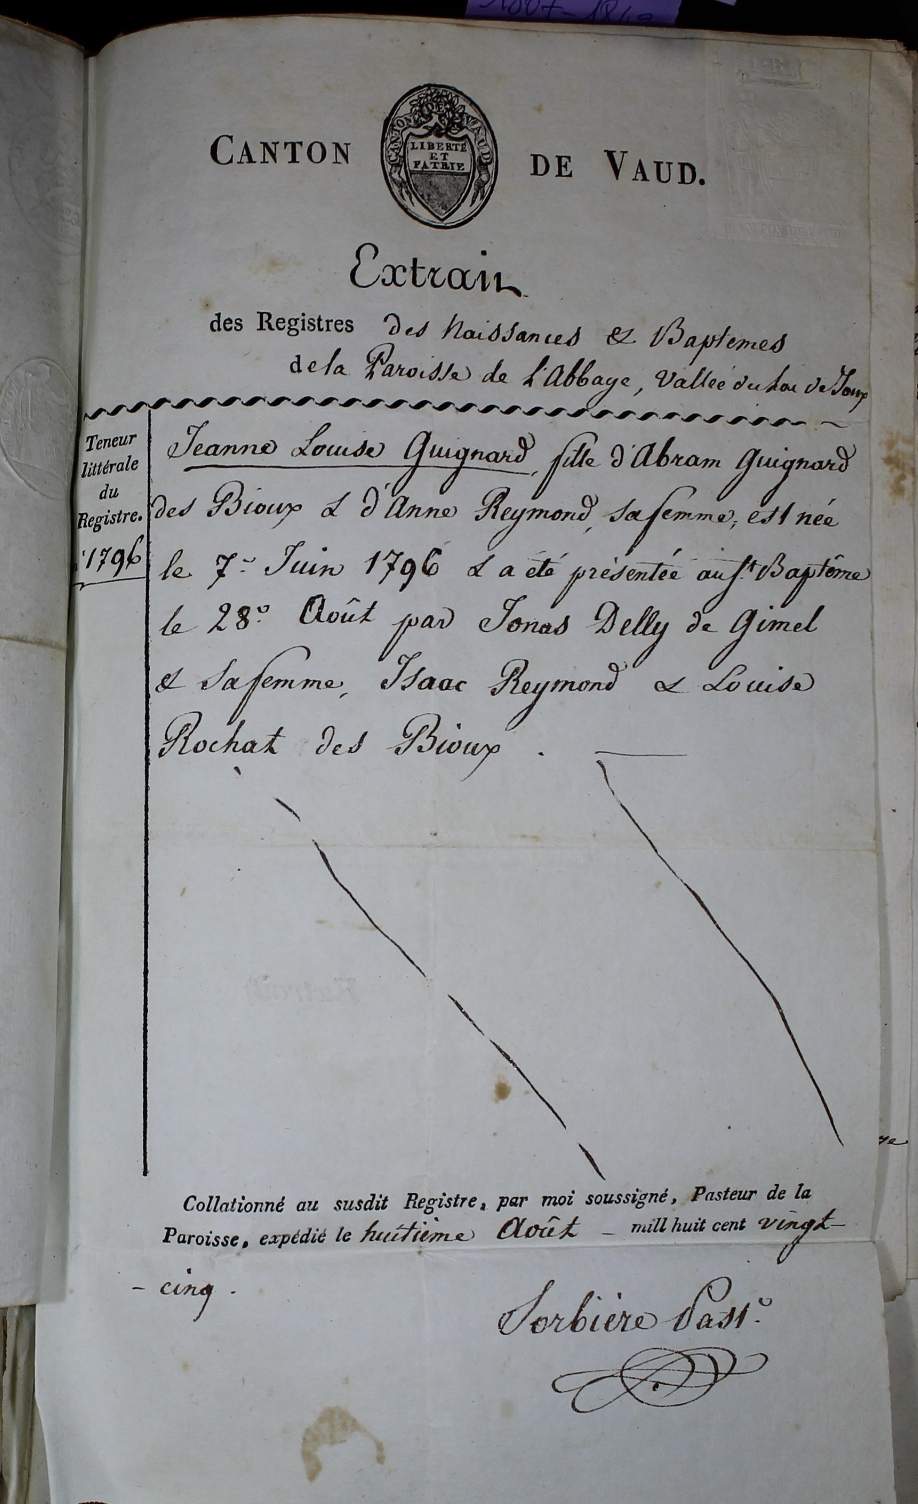 1807-18
CANTON DE VAUD.
CANTON DE VAUD
LIBERTÉ
ET
PATRIE
Extrait
des Registres des Naissances & Baptemes
de la Paroisse de L'Abbaye, Vallée du Lac de Joux
Teneur
littérale
du
Registre.
1796
Jeanne Louise Guignard, fille d'Abram Guignard
des Bioux & d'Anne Reymond, sa femme, est née
le 7e Juin 1796 & a été présentée au St Baptême
le 28e Août par Jonas Delly de Gimel
& sa femme, Isaac Reymond & Louise
Rochat des Bioux.
Collationné au susdit Registre, par moi soussigné, Pasteur de la
Paroisse, expédié le huitième Août – mill huit cent vingt-
- cinq.
Sorbière Past.r